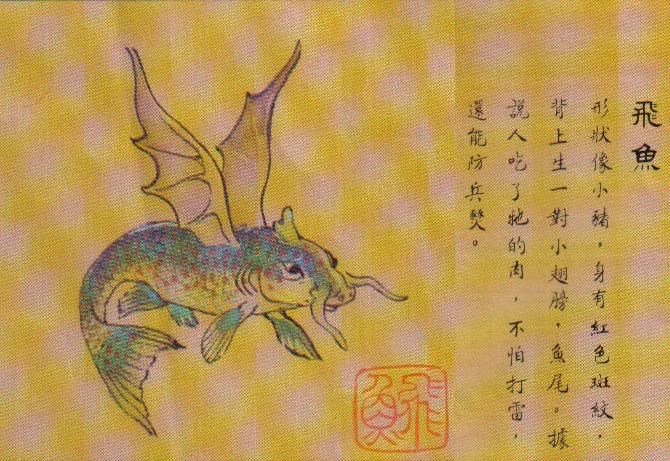 飛魚
形狀像小豬，身有紅色斑紋，
背上生一對小翅膀，魚尾。據
說人吃了牠的肉，不怕打雷，
還能防兵燹。
飛魚